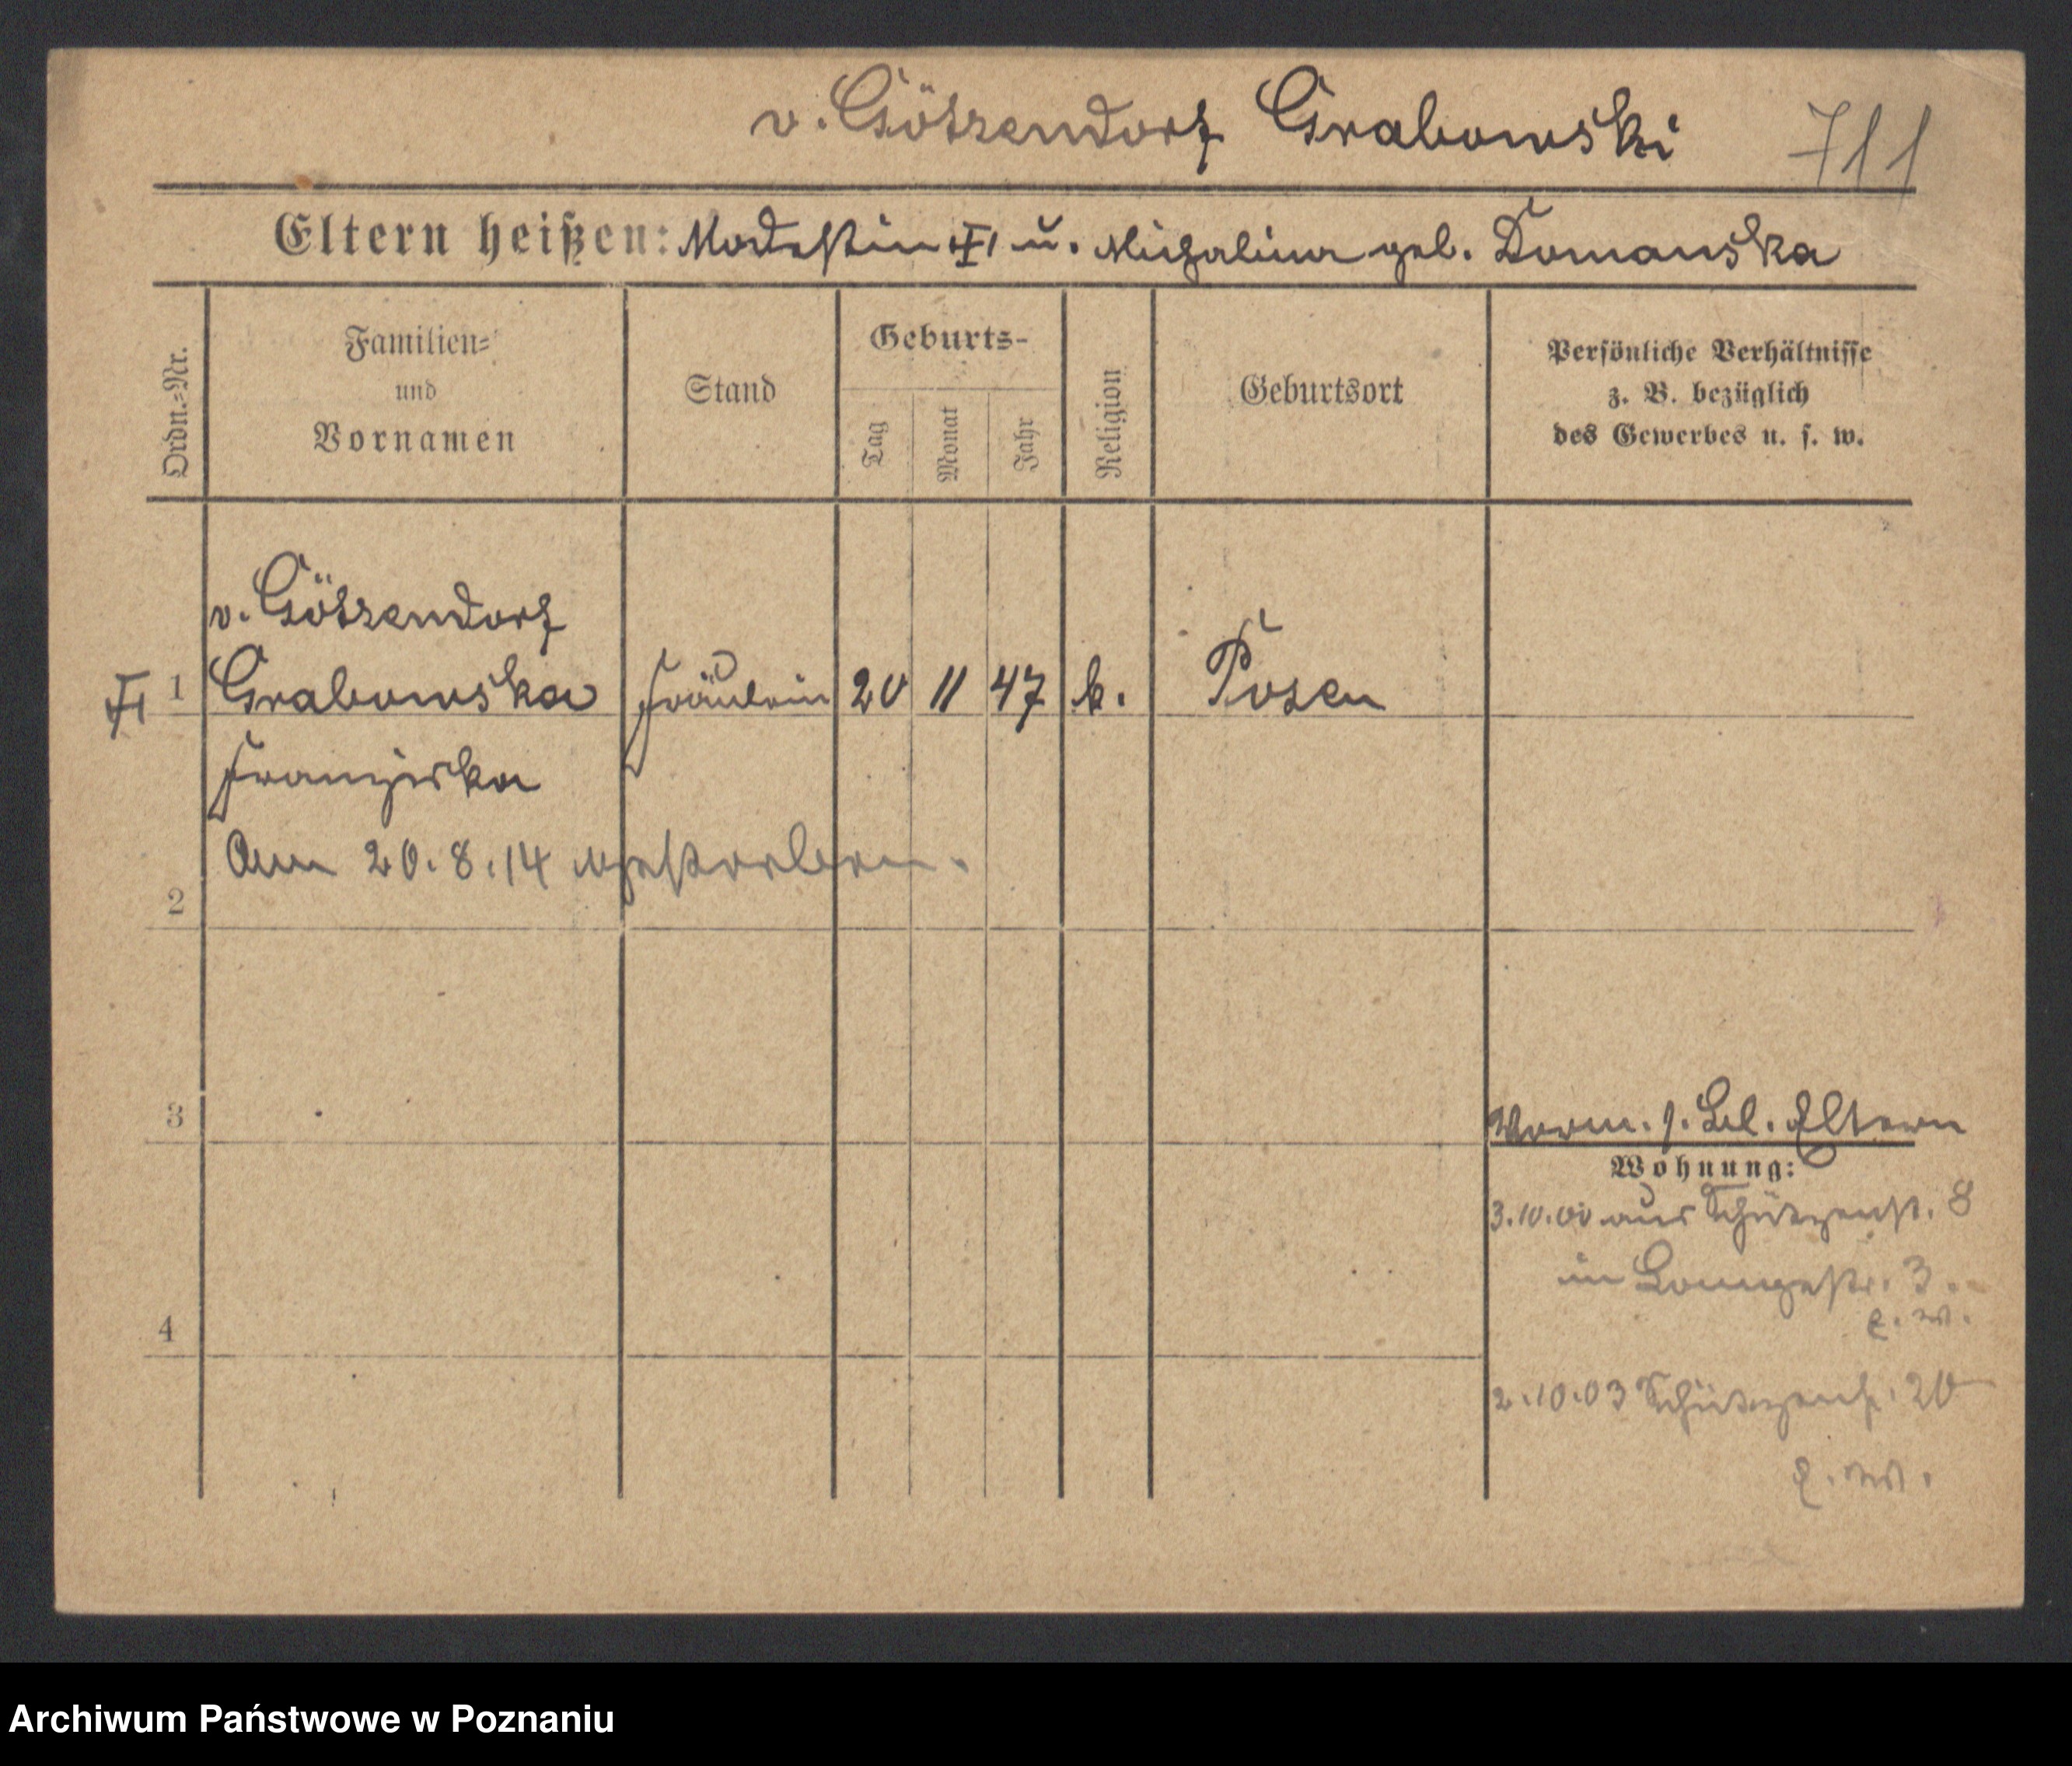 v. Götzendorf Grabowski 711
Eltern heißen: Modestin u. Michalina geb. Domanska
Ordn.-Nr.
Familien-
und
Vornamen
Stand
Geburts-
Tag
Monat
Jahr
Religion
Geburtsort
Persönliche Verhältnisse
z. B. bezüglich
des Gewerbes u. s. w.
v. Götzendorf
1 Grabowska Fräulein 20 11 47 k. Posen
Franziska
Am 20.8.14 gestorben.
2
3
Verm. s. Bl. Eltern
Wohnung:
3.10.00 aus Schützenst. 8
in Langestr. 3.
4
2.10.03 Schützenst. 20
Archiwum Państwowe w Poznaniu